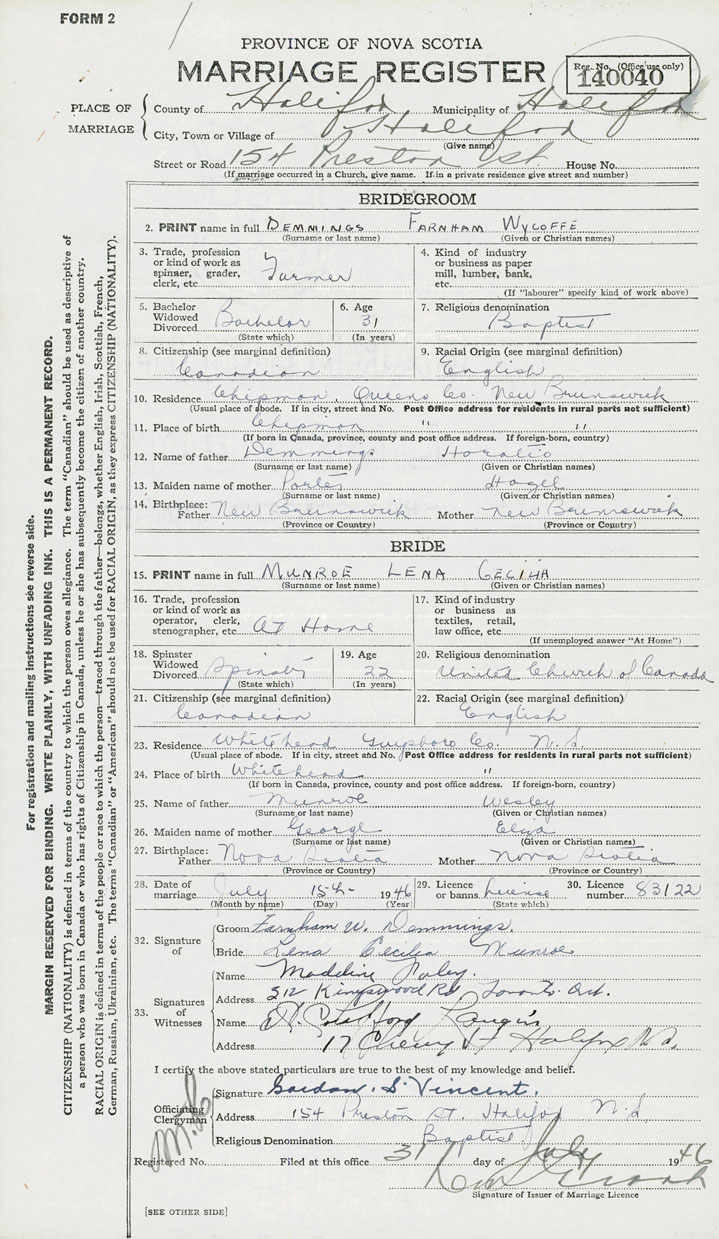 FORM 2
PROVINCE OF NOVA SCOTIA
MARRIAGE REGISTER
Reg. No. (Office use only)
140040
PLACE OF MARRIAGE
County of Halifax Municipality of Halifax
City, Town or Village of Halifax
(Give name)
Street or Road 154 Preston St House No.
(If marriage occurred in a Church, give name. If in a private residence give street and number)
BRIDEGROOM
2. PRINT name in full DEMMINGS FARNHAM WYCOFFE
(Surname or last name) (Given or Christian names)
3. Trade, profession or kind of work as spinner, grader, clerk, etc. Farmer
4. Kind of industry or business as paper mill, lumber, bank, etc.
(If "labourer" specify kind of work above)
5. Bachelor Widowed Divorced Bachelor
(State which)
6. Age 31
(In years)
7. Religious denomination
Baptist
8. Citizenship (see marginal definition)
Canadian
9. Racial Origin (see marginal definition)
English
10. Residence Chipman, Queens Co. New Brunswick
(Usual place of abode. If in city, street and No. Post Office address for residents in rural parts not sufficient)
11. Place of birth Chipman " "
(If born in Canada, province, county and post office address. If foreign-born, country)
12. Name of father Demmings Horatio
(Surname or last name) (Given or Christian names)
13. Maiden name of mother Hazel
(Surname or last name) (Given or Christian names)
14. Birthplace: Father New Brunswick Mother New Brunswick
(Province or Country) (Province or Country)
BRIDE
15. PRINT name in full MUNROE LENA CECILIA
(Surname or last name) (Given or Christian names)
16. Trade, profession or kind of work as operator, clerk, stenographer, etc. At Home
17. Kind of industry or business as textiles, retail, law office, etc.
(If unemployed answer "At Home")
18. Spinster Widowed Divorced Spinster
(State which)
19. Age 22
(In years)
20. Religious denomination
United Church of Canada
21. Citizenship (see marginal definition)
Canadian
22. Racial Origin (see marginal definition)
English
23. Residence Whitehead Guysboro Co. N.S.
(Usual place of abode. If in city, street and No. Post Office address for residents in rural parts not sufficient)
24. Place of birth Whitehead "
(If born in Canada, province, county and post office address. If foreign-born, country)
25. Name of father Munroe Wesley
(Surname or last name) (Given or Christian names)
26. Maiden name of mother George
(Surname or last name) (Given or Christian names)
27. Birthplace: Father Nova Scotia Mother Nova Scotia
(Province or Country) (Province or Country)
28. Date of marriage July 15th 1946
(Month by name) (Day) (Year)
29. Licence or banns License
(State which)
30. Licence number 83122
32. Signature of
Groom Farnham W. Demmings.
Bride Lena Cecilia Munroe
33. Signatures of Witnesses
Name Madeline
Address 212 Kingswood Rd Toronto Ont.
Name
Address 17 Cherry St Halifax N.S.
I certify the above stated particulars are true to the best of my knowledge and belief.
Officiating Clergyman
Signature Gordon S Vincent.
Address 154 Preston St. Halifax N.S.
Religious Denomination Baptist
Registered No. Filed at this office 31 day of July 1946
Signature of Issuer of Marriage Licence
[SEE OTHER SIDE]
For registration and mailing instructions see reverse side.
MARGIN RESERVED FOR BINDING. WRITE PLAINLY, WITH UNFADING INK. THIS IS A PERMANENT RECORD.
CITIZENSHIP (NATIONALITY) is defined in terms of the country to which the person owes allegiance. The term "Canadian" should be used as descriptive of
a person who was born in Canada or who has rights of Citizenship in Canada, unless he or she has subsequently become the citizen of another country.
RACIAL ORIGIN is defined in terms of the people or race to which the person—traced through the father—belongs, whether English, Irish, Scottish, French,
German, Russian, Ukrainian, etc. The terms "Canadian" or "American" should not be used for RACIAL ORIGIN, as they express CITIZENSHIP (NATIONALITY).